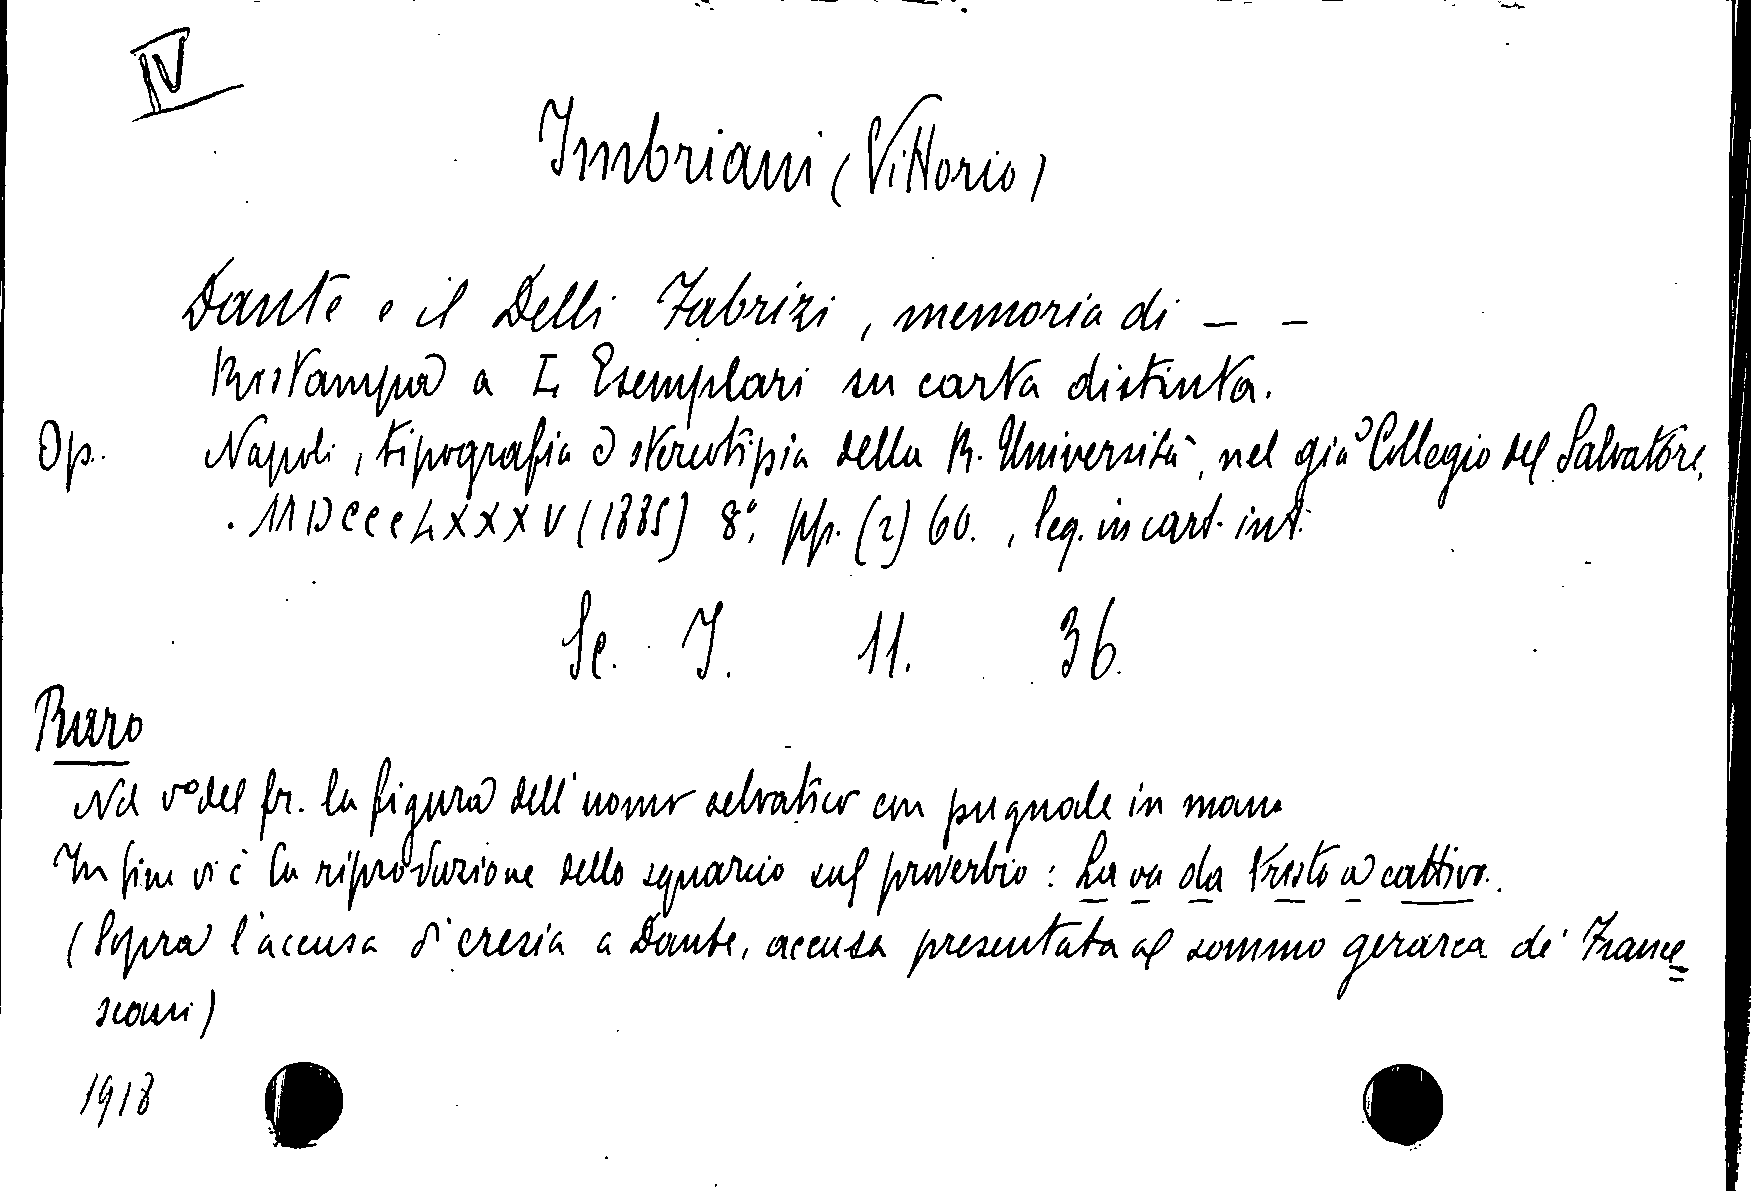 IV
Imbriani (Vittorio)
Dante e il Delli Fabrizi, memoria di _ _
Ristampa a L Esemplari su carta distinta.
Op. Napoli, tipografia e stereotipia della R. Università, nel già Collegio del Salvatore,
. MDCCCLXXXV (1885) 8°, pp. (2) 60. , leg. in cart. int.
Sc. I. 11. 36.
Raro
Nel v° del fr. la figura dell'uomo selvatico con pugnale in mano
In fine vi è la riproduzione dello squarcio sul proverbio: La va da tristo a cattivo.
(Sopra l'accusa d'eresia a Dante, accusa presentata al sommo gerarca de' France=
scani)
1918